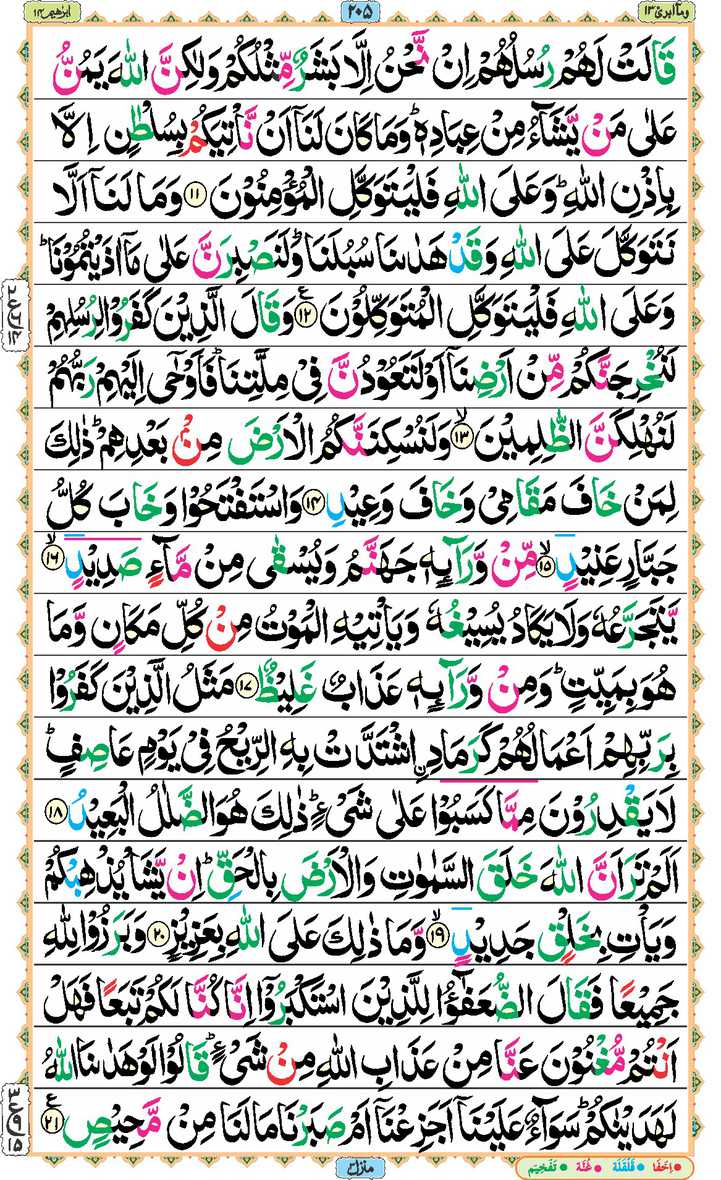 وما ابرئ ١٣
٢٠٥
ابرٰهيم ١٤
قَالَتْ لَهُمْ رُسُلُهُمْ اِنْ نَّحْنُ اِلَّا بَشَرٌ مِّثْلُكُمْ وَلٰكِنَّ اللّٰهَ يَمُنُّ
عَلٰى مَنْ يَّشَآءُ مِنْ عِبَادِهٖ ؕ وَمَا كَانَ لَنَاۤ اَنْ نَّاْتِيَكُمْ بِسُلْطٰنٍ اِلَّا
بِاِذْنِ اللّٰهِ ؕ وَعَلَى اللّٰهِ فَلْيَتَوَكَّلِ الْمُؤْمِنُوْنَ ۝۱۱ وَمَا لَنَاۤ اَلَّا
نَتَوَكَّلَ عَلَى اللّٰهِ وَقَدْ هَدٰىنَا سُبُلَنَا ؕ وَلَنَصْبِرَنَّ عَلٰى مَاۤ اٰذَيْتُمُوْنَا ؕ
وَعَلَى اللّٰهِ فَلْيَتَوَكَّلِ الْمُتَوَكِّلُوْنَ ۝۱۲ وَقَالَ الَّذِيْنَ كَفَرُوْا لِرُسُلِهِمْ
لَنُخْرِجَنَّكُمْ مِّنْ اَرْضِنَاۤ اَوْ لَتَعُوْدُنَّ فِيْ مِلَّتِنَا ؕ فَاَوْحٰۤى اِلَيْهِمْ رَبُّهُمْ
لَنُهْلِكَنَّ الظّٰلِمِيْنَ ۝۱۳ۙ وَلَنُسْكِنَنَّكُمُ الْاَرْضَ مِنْۢ بَعْدِهِمْ ؕ ذٰلِكَ
لِمَنْ خَافَ مَقَامِيْ وَخَافَ وَعِيْدِ ۝۱۴ وَاسْتَفْتَحُوْا وَخَابَ كُلُّ
جَبَّارٍ عَنِيْدٍ ۝۱۵ۙ مِّنْ وَّرَآىِٕهٖ جَهَنَّمُ وَيُسْقٰى مِنْ مَّآءٍ صَدِيْدٍ ۝۱۶ۙ
يَّتَجَرَّعُهٗ وَلَا يَكَادُ يُسِيْغُهٗ وَيَاْتِيْهِ الْمَوْتُ مِنْ كُلِّ مَكَانٍ وَّمَا
هُوَ بِمَيِّتٍ ؕ وَمِنْ وَّرَآىِٕهٖ عَذَابٌ غَلِيْظٌ ۝۱۷ مَثَلُ الَّذِيْنَ كَفَرُوْا
بِرَبِّهِمْ اَعْمَالُهُمْ كَرَمَادِ ِۨاشْتَدَّتْ بِهِ الرِّيْحُ فِيْ يَوْمٍ عَاصِفٍ ؕ
لَا يَقْدِرُوْنَ مِمَّا كَسَبُوْا عَلٰى شَيْءٍ ؕ ذٰلِكَ هُوَ الضَّلٰلُ الْبَعِيْدُ ۝۱۸
اَلَمْ تَرَ اَنَّ اللّٰهَ خَلَقَ السَّمٰوٰتِ وَالْاَرْضَ بِالْحَقِّ ؕ اِنْ يَّشَاْ يُذْهِبْكُمْ
وَيَاْتِ بِخَلْقٍ جَدِيْدٍ ۝۱۹ۙ وَّمَا ذٰلِكَ عَلَى اللّٰهِ بِعَزِيْزٍ ۝۲۰ وَبَرَزُوْا لِلّٰهِ
جَمِيْعًا فَقَالَ الضُّعَفٰٓؤُا لِلَّذِيْنَ اسْتَكْبَرُوْۤا اِنَّا كُنَّا لَكُمْ تَبَعًا فَهَلْ
اَنْتُمْ مُّغْنُوْنَ عَنَّا مِنْ عَذَابِ اللّٰهِ مِنْ شَيْءٍ ؕ قَالُوْا لَوْ هَدٰىنَا اللّٰهُ
لَهَدَيْنٰكُمْ ؕ سَوَآءٌ عَلَيْنَاۤ اَجَزِعْنَاۤ اَمْ صَبَرْنَا مَا لَنَا مِنْ مَّحِيْصٍ ۝۲۱
منزل ۳
اِخْفَا قَلْقَلَة غُنَّة تَفْخِيْم